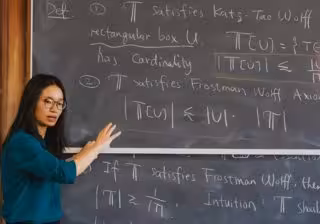 Def. ① 𝕋 satisfies Katz-Tao Wolff
rectangular box U 𝕋[U] =
has Cardinality |𝕋[U]| ≤
② 𝕋 satisfies Frostman Wolff Axio
|𝕋[U]| ≤ |U| · |𝕋|
If 𝕋 satisfies Frostman Wolff, then
|𝕋| ≥ Intuition: 𝕋 shoul